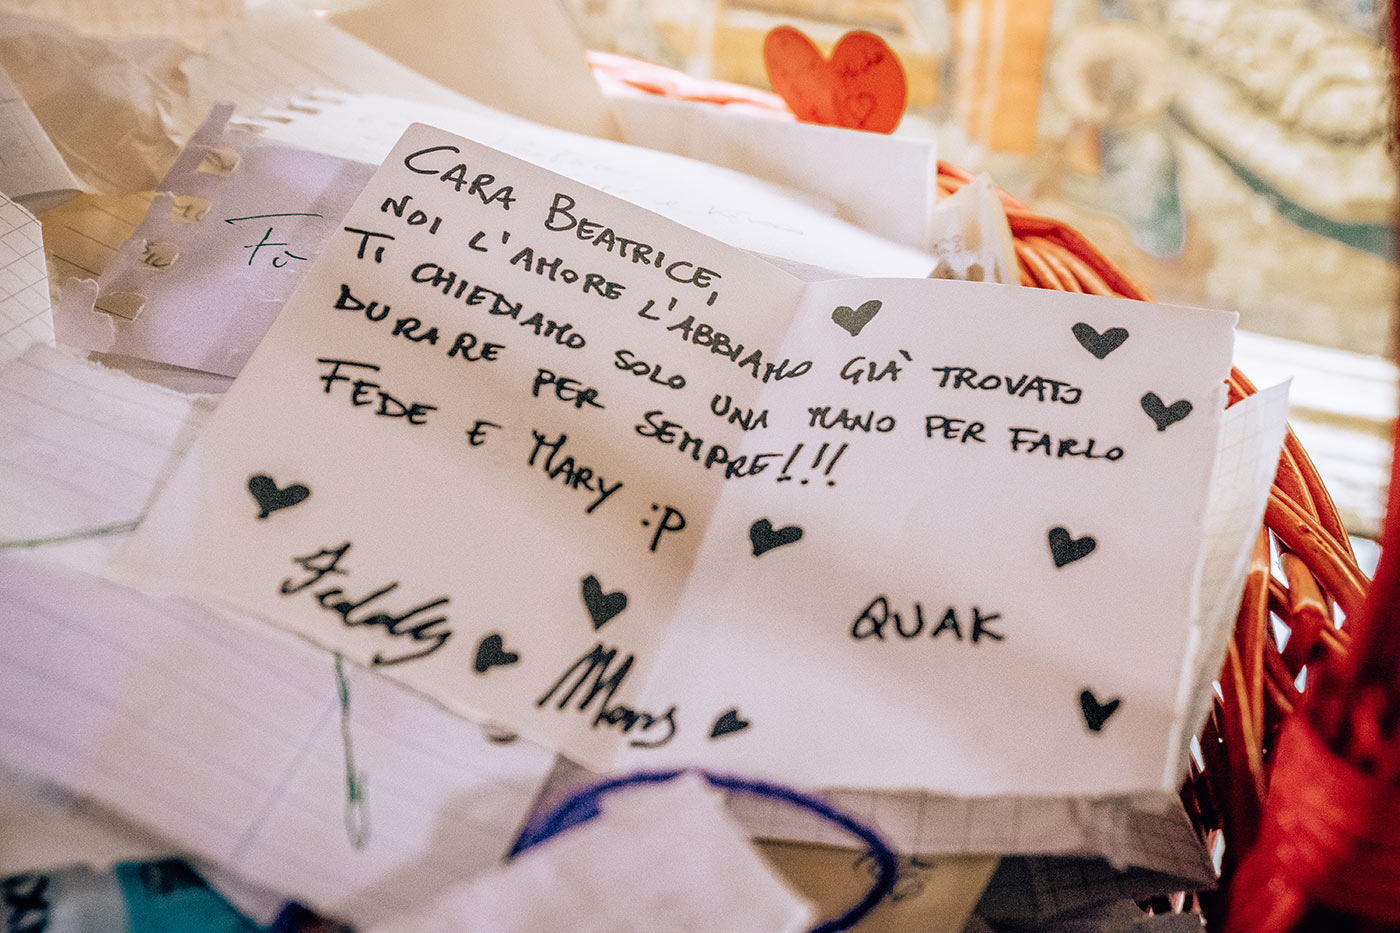 CARA BEATRICE,
NOI L'AMORE L'ABBIAMO GIÀ TROVATO
TI CHIEDIAMO SOLO UNA MANO PER FARLO
DURARE PER SEMPRE!!!
FEDE E MARY :P
Feddy
Mary
QUAK